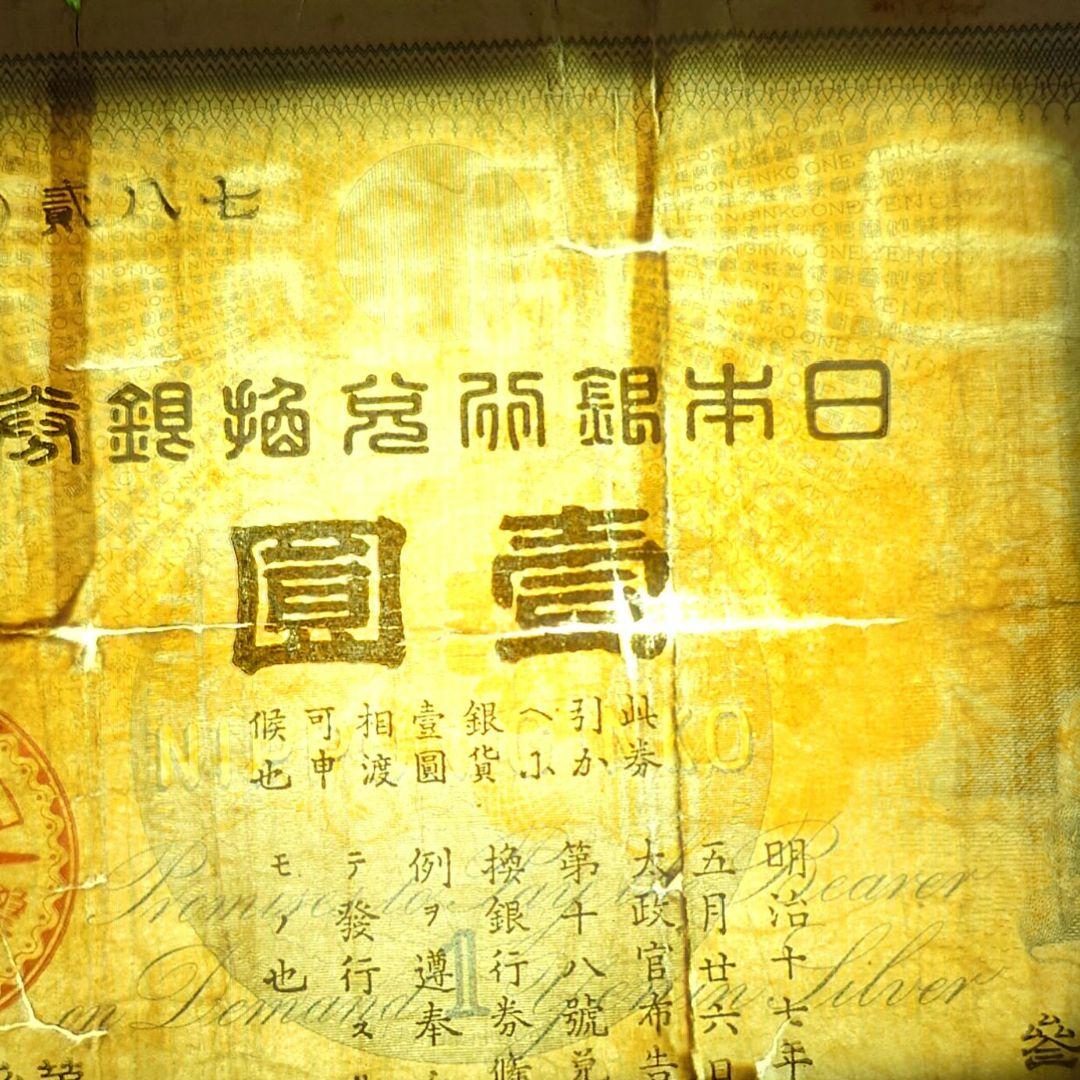 七八貳
日本銀行兌換銀券
壹圓
此券
引か
へに
銀貨
壹圓
相渡
可申
候也
NIPPON GINKO
明治十七年
五月廿六日
太政官布告
第十八號兌
換銀行券條
例ヲ遵奉シ
テ發行スル
モノ也
Promises to Pay the Bearer
on Demand One Yen in Silver
1
NIPPON GINKO ONE YEN